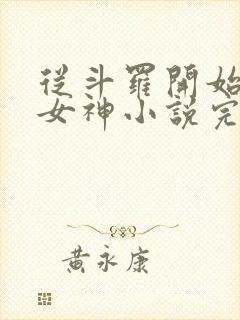 從斗羅開始
女神小說完
黃永康